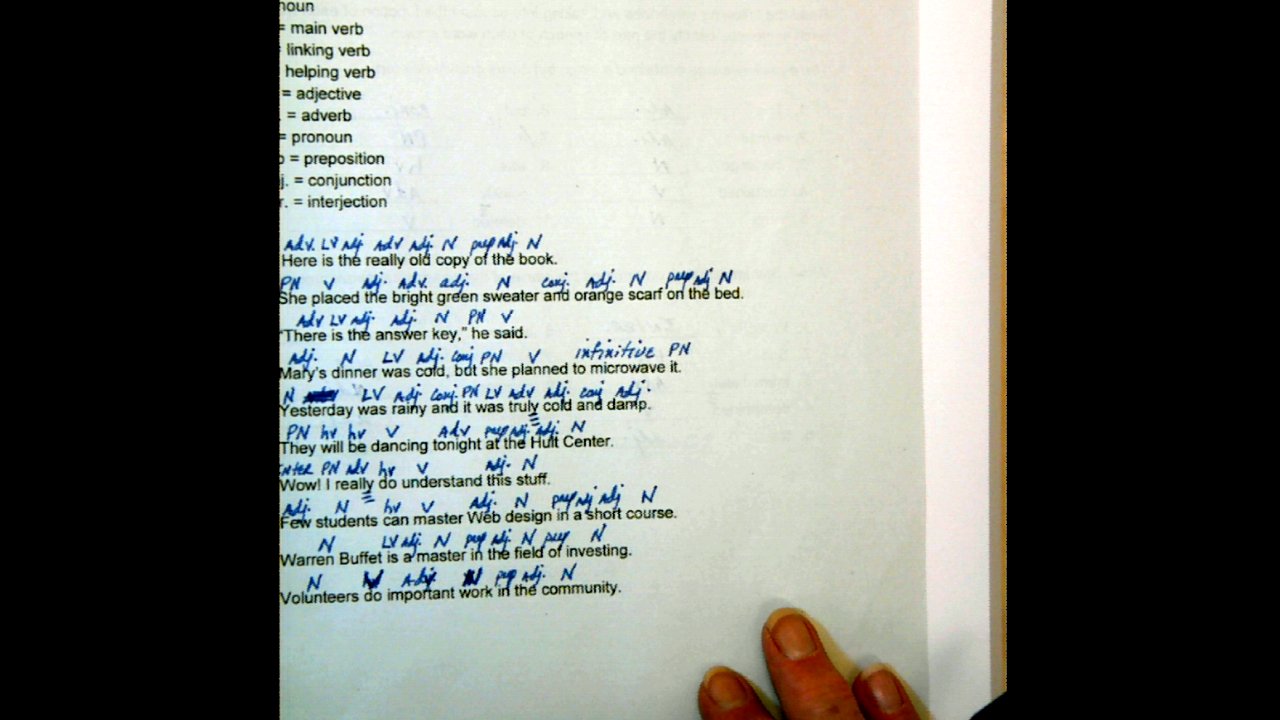 noun
= main verb
linking verb
helping verb
= adjective
. = adverb
= pronoun
p = preposition
j. = conjunction
r. = interjection
Adv. LV Adj Adv Adj. N prep Adj. N
Here is the really old copy of the book.
PN V Adj. Adv. adj. N conj. Adj. N prep adj N
She placed the bright green sweater and orange scarf on the bed.
Adv LV Adj. Adj. N PN V
"There is the answer key," he said.
Adj. N LV Adj. conj PN V infinitive PN
Mary's dinner was cold, but she planned to microwave it.
N LV Adj conj. PN LV Adv Adj. conj Adj.
Yesterday was rainy and it was truly cold and damp.
PN hv hv V Adv prep Adj. adj. N
They will be dancing tonight at the Hult Center.
INTER PN Adv hv V Adj. N
Wow! I really do understand this stuff.
Adj. N hv V Adj. N prep Adj Adj N
Few students can master Web design in a short course.
N LV Adj. N prep Adj. N prep N
Warren Buffet is a master in the field of investing.
N V Adj N prep Adj. N
Volunteers do important work in the community.